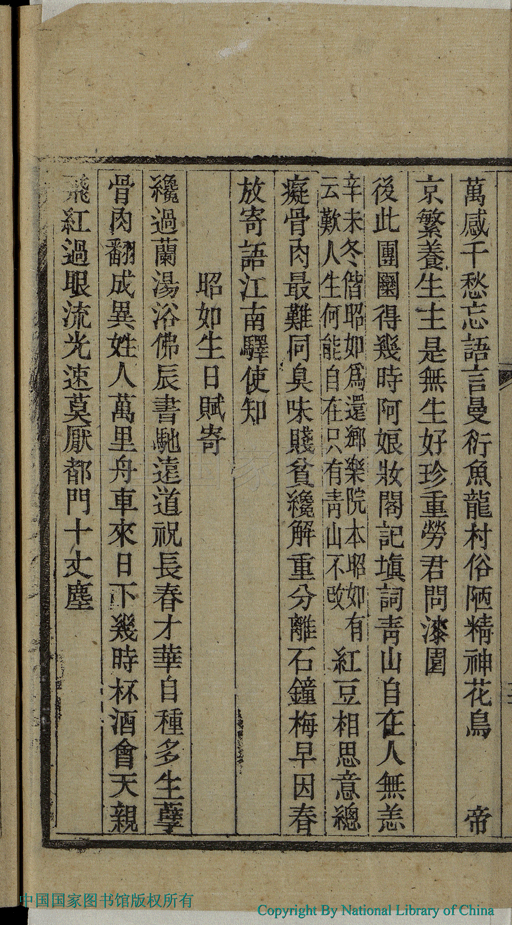 萬感千愁忘語言曼衍魚龍村俗陋精神花鳥　帝
京繁養生主是無生好珍重勞君問漆園
後此團圞得幾時阿娘妝閣記填詞青山自在人無恙
辛未冬偕昭如爲還鄉樂院本昭如有
云歎人生何能自在只有靑山不改
紅豆相思意總
癡骨肉最難同臭味賤貧纔解重分離石鐘梅早因春
放寄語江南驛使知
昭如生日賦寄
纔過蘭湯浴佛辰書馳遠道祝長春才華自種多生孽
骨肉翻成異姓人萬里舟車來日下幾時杯酒會天親
飛紅過眼流光速莫厭都門十丈塵
中国国家图书馆版权所有
Copyright By National Library of China